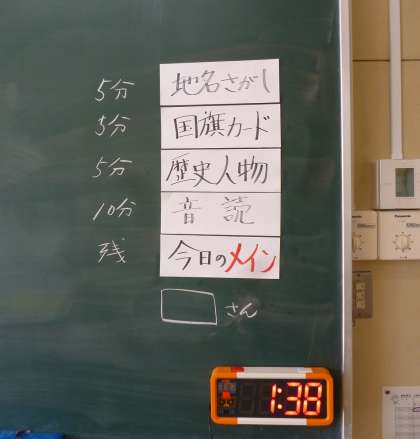 5分 地名さがし
5分 国旗カード
5分 歴史人物
10分 音読
残 今日のメイン
さん
Panasonic
1:38